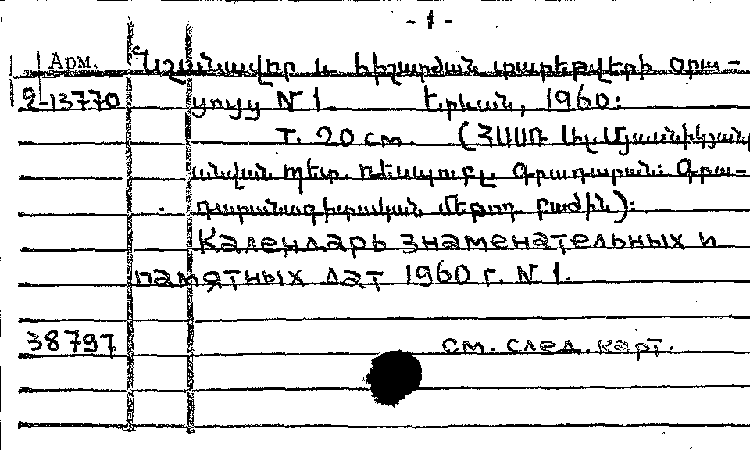 - 1 -
Арм. Նշանավոր և հիշարժան տարեթվերի օրա-
2-13770 ցույց N 1. Երևան, 1960:
Т. 20 см. (ՀՍՍՌ Ալ. Մյասնիկյանի
անվան պետ. ռեսպուբլ. գրադարան: Գրա-
դարանագիտական մեթոդ. բաժին):
Календарь знаменательных и
памятных дат 1960 г. N 1.
38797 см. след. карт.